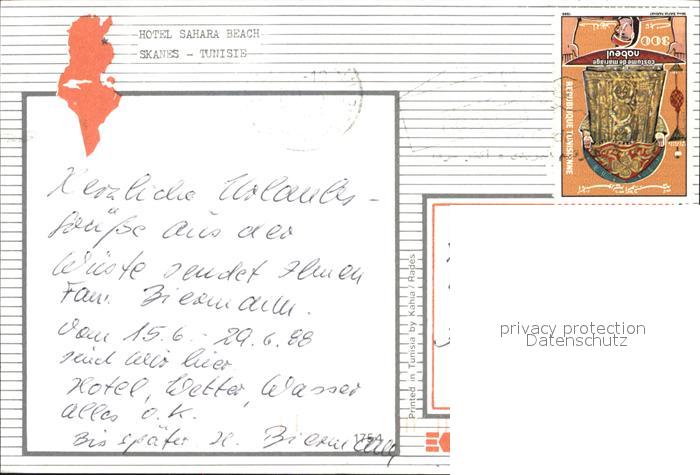 HOTEL SAHARA BEACH
SKANES - TUNISIE
Herzliche Urlaubs-
grüße aus der
Wüste sendet Ihnen
Fam. Biermann.
Vom 15.6. - 29.6.88
sind wir hier.
Hotel, Wetter, Wasser
alles o.K.
Bis später H. Biermann
1754
Printed in Tunisia by Kahia / Rades
300
nabeul
costume de mariage
REPUBLIQUE TUNISIENNE
privacy protection
Datenschutz